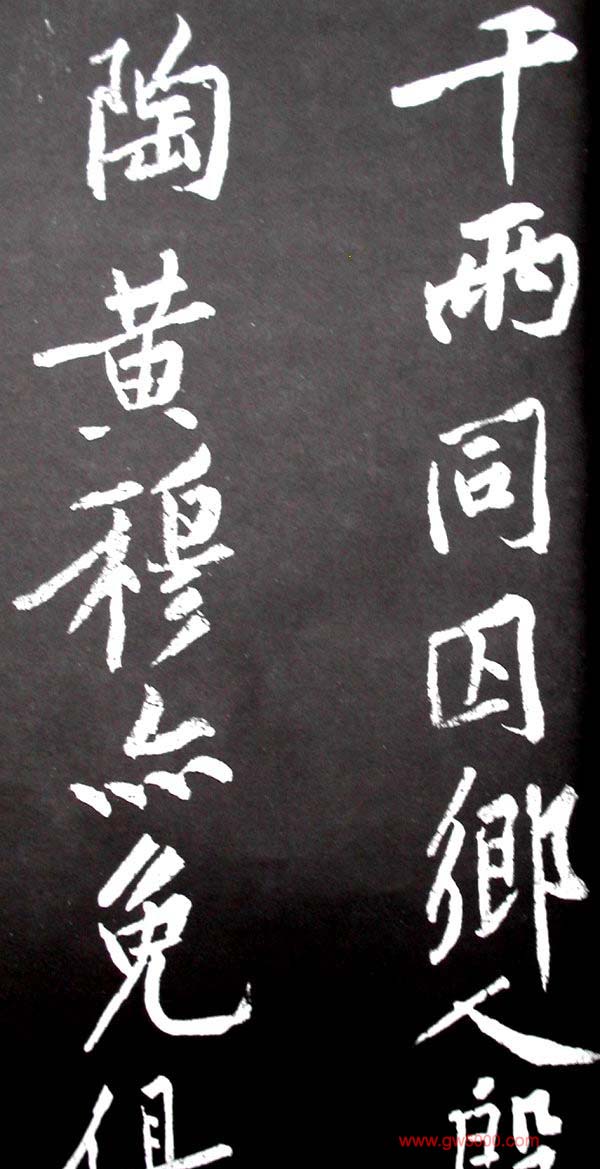 千兩同囚鄉人殷
陶黄穆亦免俱
www.gw5000.com